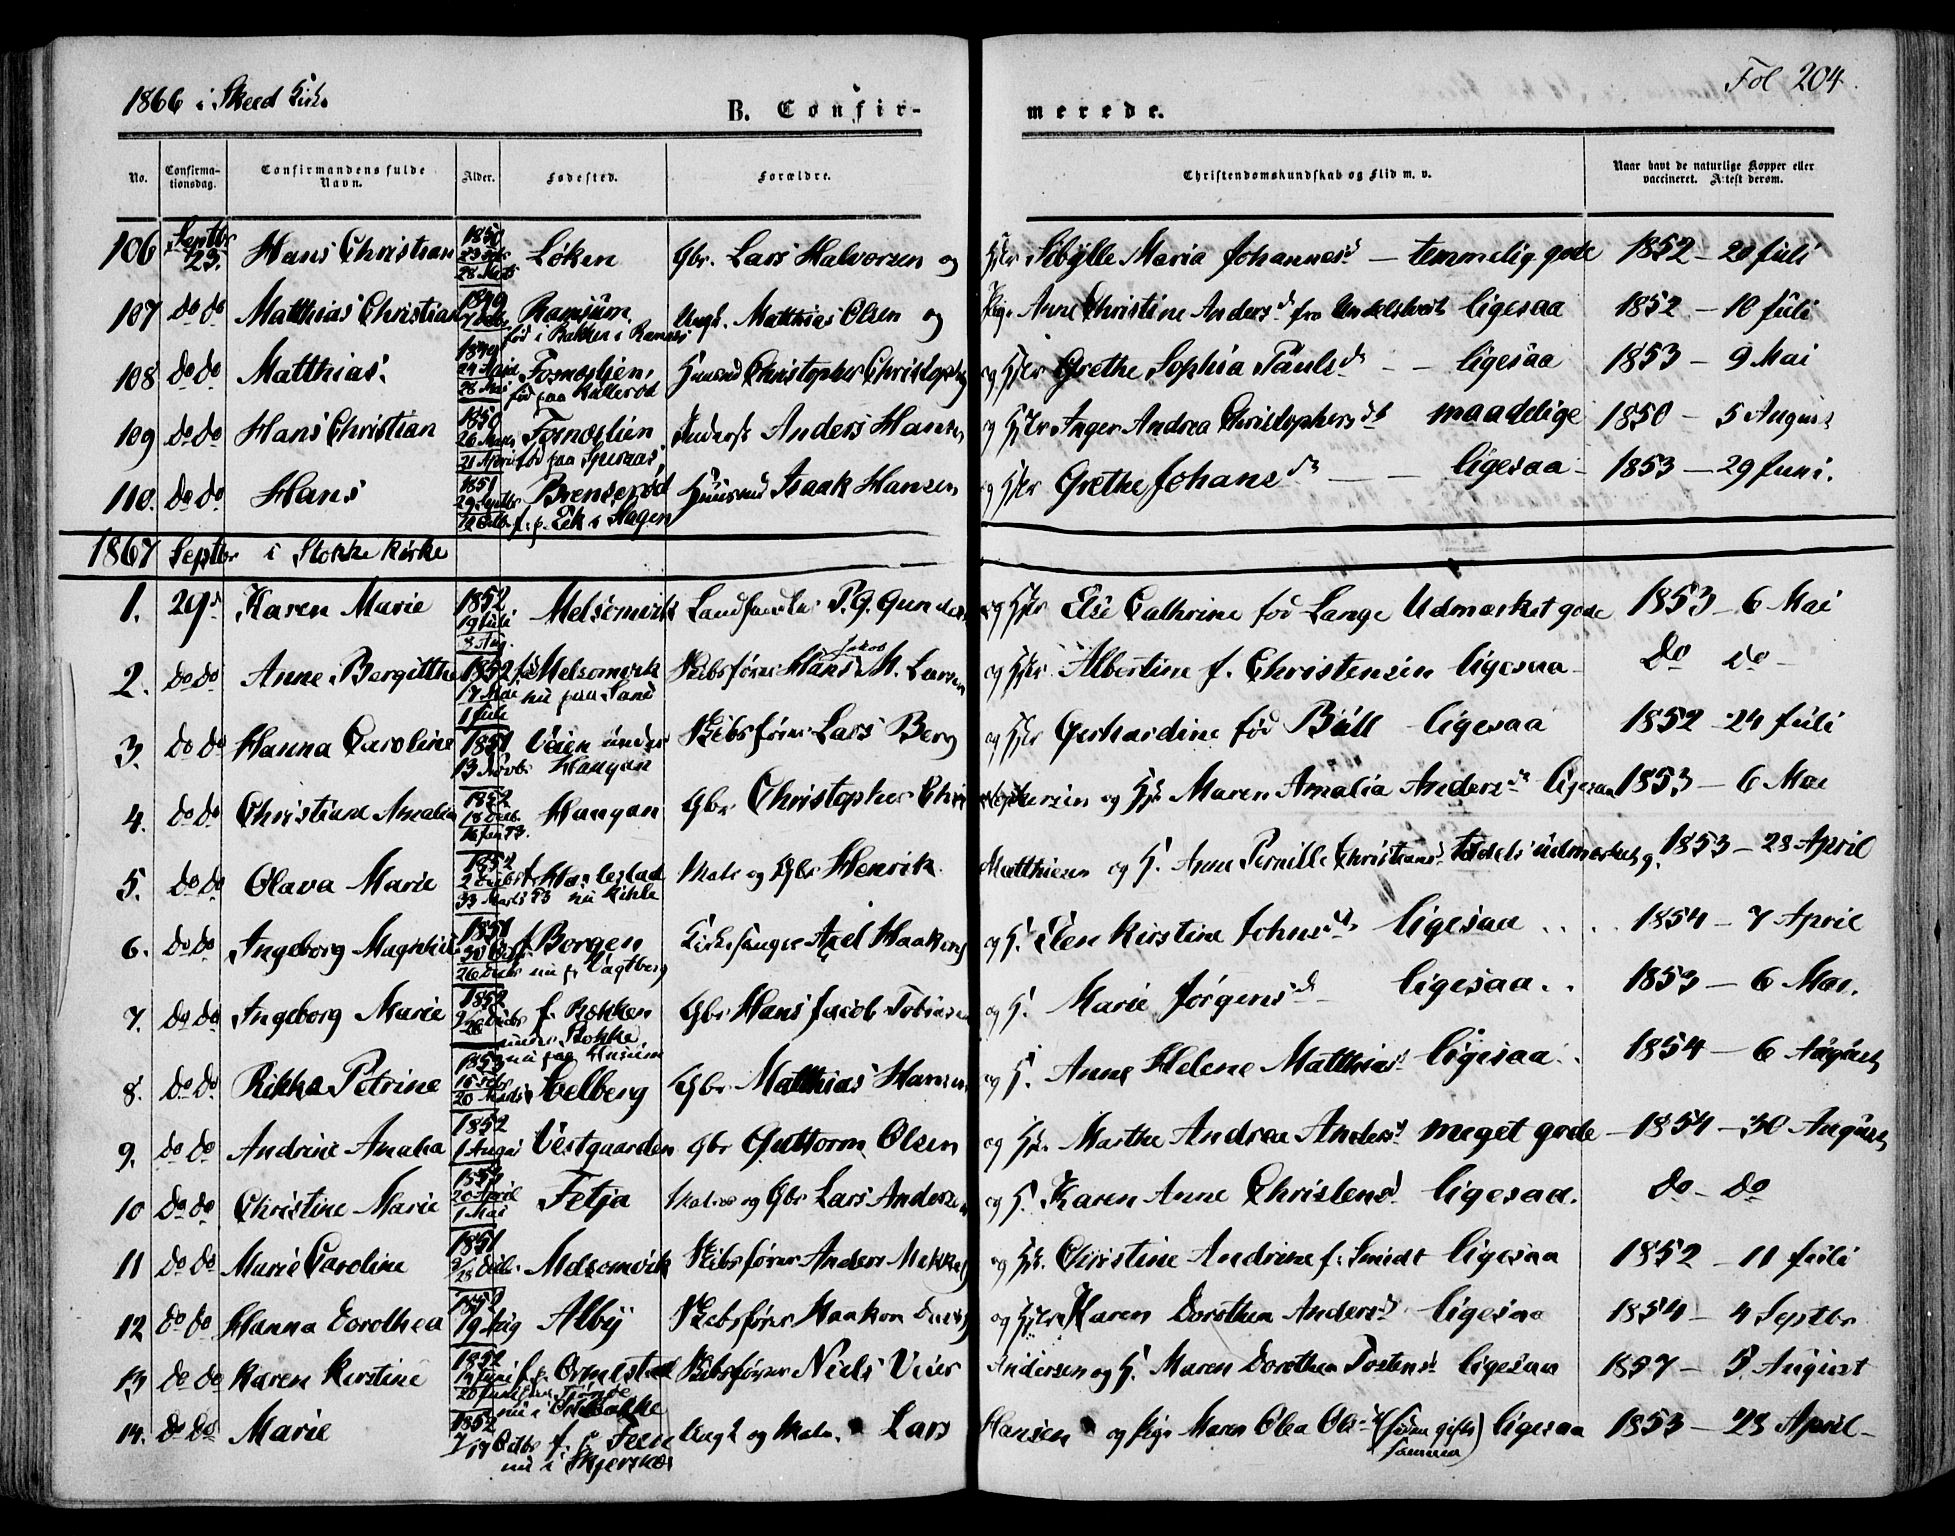 1866 i Skeed Kirke
Fol 204.
B. Confir-merede.
No. Confirma-tionsdag. Confirmandens fulde Navn. Alder. Fødested. Forældre. Christendomskundskab og Flid m. v. Naar havt de naturlige Kopper eller vaccineret. Attest derom.
106 Septbr 23. Hans Christian 1850 28 Marts Løken Gbr. Lars Halvorsen og Hstr Sibylle Maria Johannesd — temmelig gode 1852 — 20 Juli
107 do do Matthias Christian Ramsum Ungk. Matthias Olsen og Pige Anne Christine Andersd fra ligesaa 1852 — 10 Juli
108 do do Matthias. 28 Mai Fosnæslien, fød paa Hillerød Huusmd Christopher og Hstr Grethe Sophia Paulsd — ligesaa 1853 — 9 Mai
109 do do Hans Christian 1850 21 April Fosnæslien fød paa Anders Hansen og Hstr Inger Andrea Christophersd maadelige 1850 — 5 August
110. do do Hans 1851 29 Septbr Brenserød f. p. Eik i Slagen Huusmd Isaak Hansen og Hstr Grethe Johansd — ligesaa — 1853 — 29 Juni.
1867 Septbr i Stokke Kirke
1. 29d Karen Marie 1852 19 Juli 8 Aug. Melsomvik Landhandler P. G. og Hstr Else Cathrine fød Lange Udmærket gode 1853 — 6 Mai
2. do do Anne Bergitthe 1852 17 Mai 1 Juli f. i Melsomvik nu paa Sand Skibsfører Hans Jakob M. Larsen og Hstr. Albertine f. Christensen ligesaa do do
3. do do Hanna Caroline 1851 13 Novbr Veien under Haugan Skibsfører Lars Berg og Hstr Gerhardine fød Bull ligesaa 1852 — 24 Juli
4. do do Christiane Amalia 1852 18 Decb. 16 Jan 53. Haugan Gbr Christopher Christophersen og Hst. Maren Amalia Andersd ligesaa 1853 — 6 Mai
5. do do Olava Marie 1852 Marts 53 nu Kihle og Gbr Henrik Matthisen og H. Anne Pernille Christiansd tildels udmærket g. 1853 — 28 April
6. do do Ingeborg Magnhild 1851 26 Decbr f. Borgen nu p. Vagtberg Kirkesanger Axel Haakens og H. Elen Kirstine Johnsd ligesaa 1854 — 7 April
7. do do Ingeborg Marie 1852 Decbr f. Bokken under Stokke nu paa Husum Gbr Hans Jacob Tobiasen og H. Marie Jørgensd ligesaa 1853 — 6 Mai.
8. do do Rikka Petrine 1853 20 Marts Solberg Gbr Matthias Hansen og H. Anne Helene Matthiasd ligesaa 1854 — 6 August
9. do do Andrine Amalia 1852 1 August Vestgaarden Gbr Guttorm Olsen og Hst. Marthe Andrea Andersd meget gode — 1854 — 30 August
10 do do Christine Marie 20 April 1 Mai Fetja og Gbr Lars Andersen og H. Karen Anne Christensd ligesaa. do — do
11 do do Marie Caroline 1851 /28 Decbr. Melsomvik Skibsfører Anders og Hst. Christine Andrine f. Smidt ligesaa 1852 — 11 Juli
12 do do Hanna Dorothea 19 Aug Alby Skibsfører Haakon og Hstr Karen Dorothea Andersd ligesaa 1854 — 4 Septbr
13 do do Karen Kirstine 1852 f. p. Ormestad nu i Skibsfører Niels Veier Andersen og H. Maren Dorothea Tostensd ligesaa 1857 — 5 August
14. do do Marie 1852 /17 Octbr f. p. Feen nu i Skjersnes Ungk og Lars Hansen og Pige Maren Olea Olsd (siden gifte sammen) ligesaa 1853 — 28 April